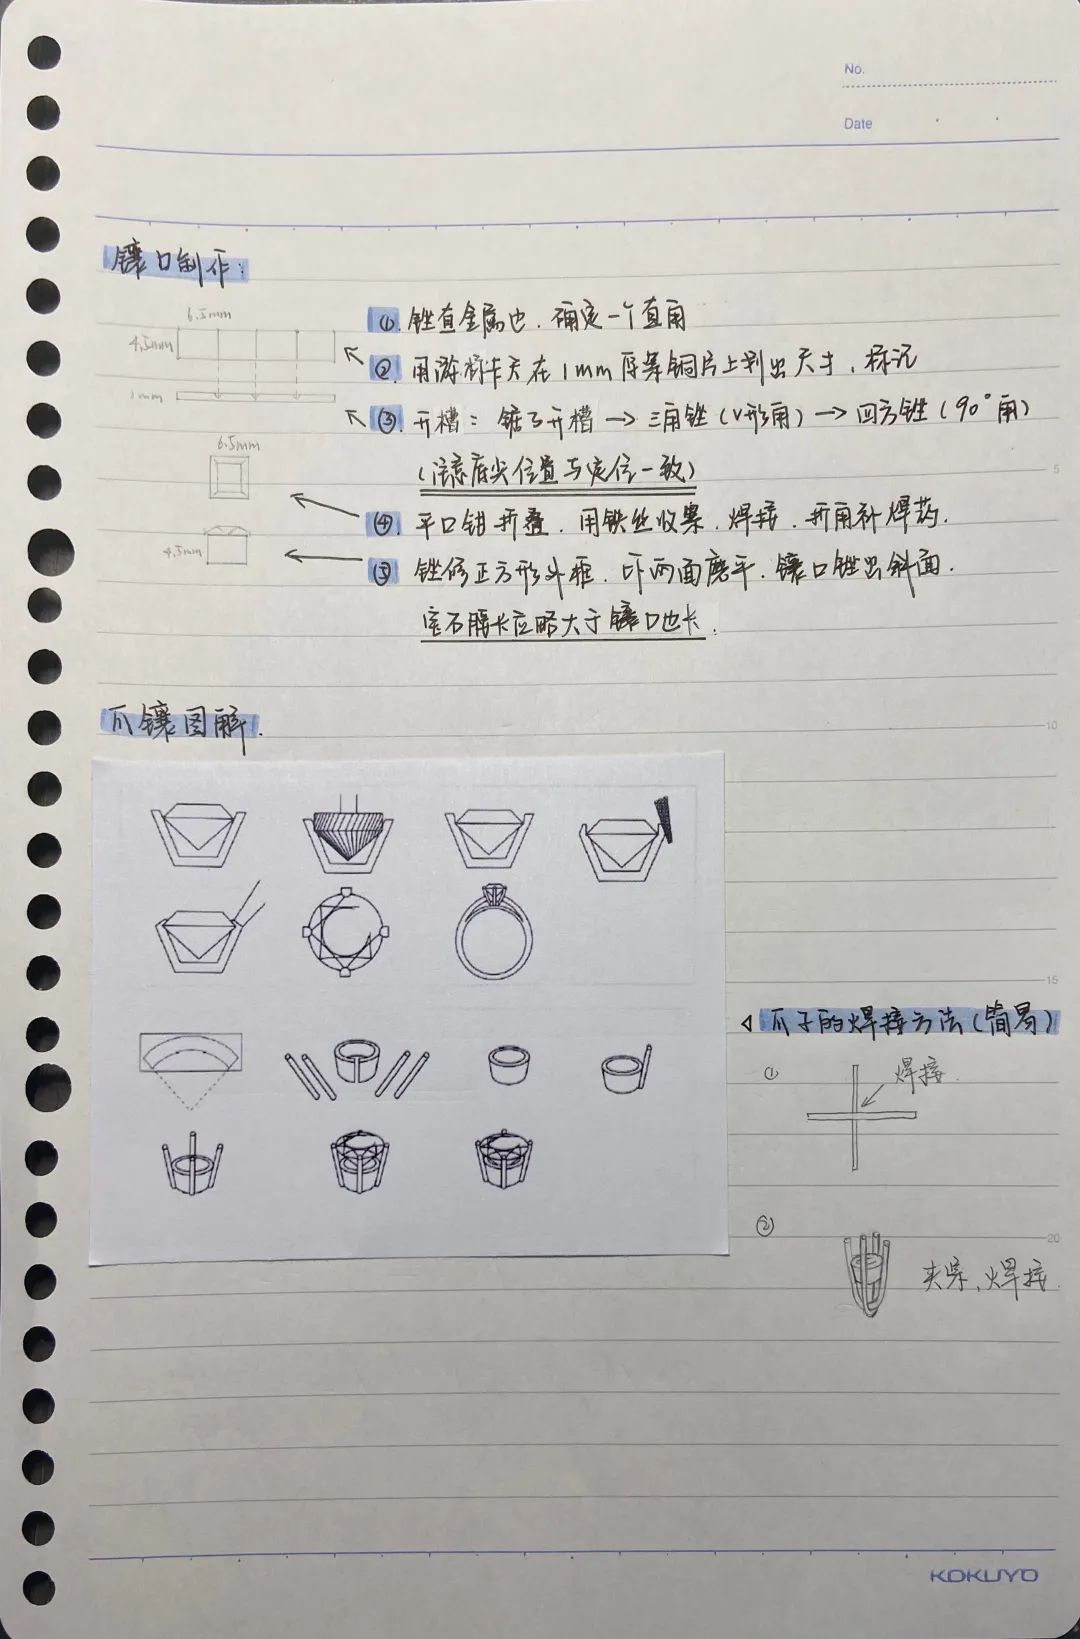 No.
Date
镶口制作：
6.5mm
4.5mm
1mm
①. 锉直金属边．确定一个直角
②. 用游标卡尺在1mm厚紫铜片上划出尺寸、标记
③. 开槽：锯弓开槽→三角锉(V形角)→四方锉(90°角)
(注意底尖位置与定位一致)
6.5mm
④. 平口钳折叠．用铁丝收紧．焊接．折角补焊药．
4.5mm
⑤. 锉修正方形外框．上下两面磨平．镶口锉出斜面．
宝石腰长应略大于镶口边长．
5
爪镶图解．
10
15
◁ 爪子的焊接方法(简易)
① 焊接．
②
20
夹紧、焊接．
KOKUYO